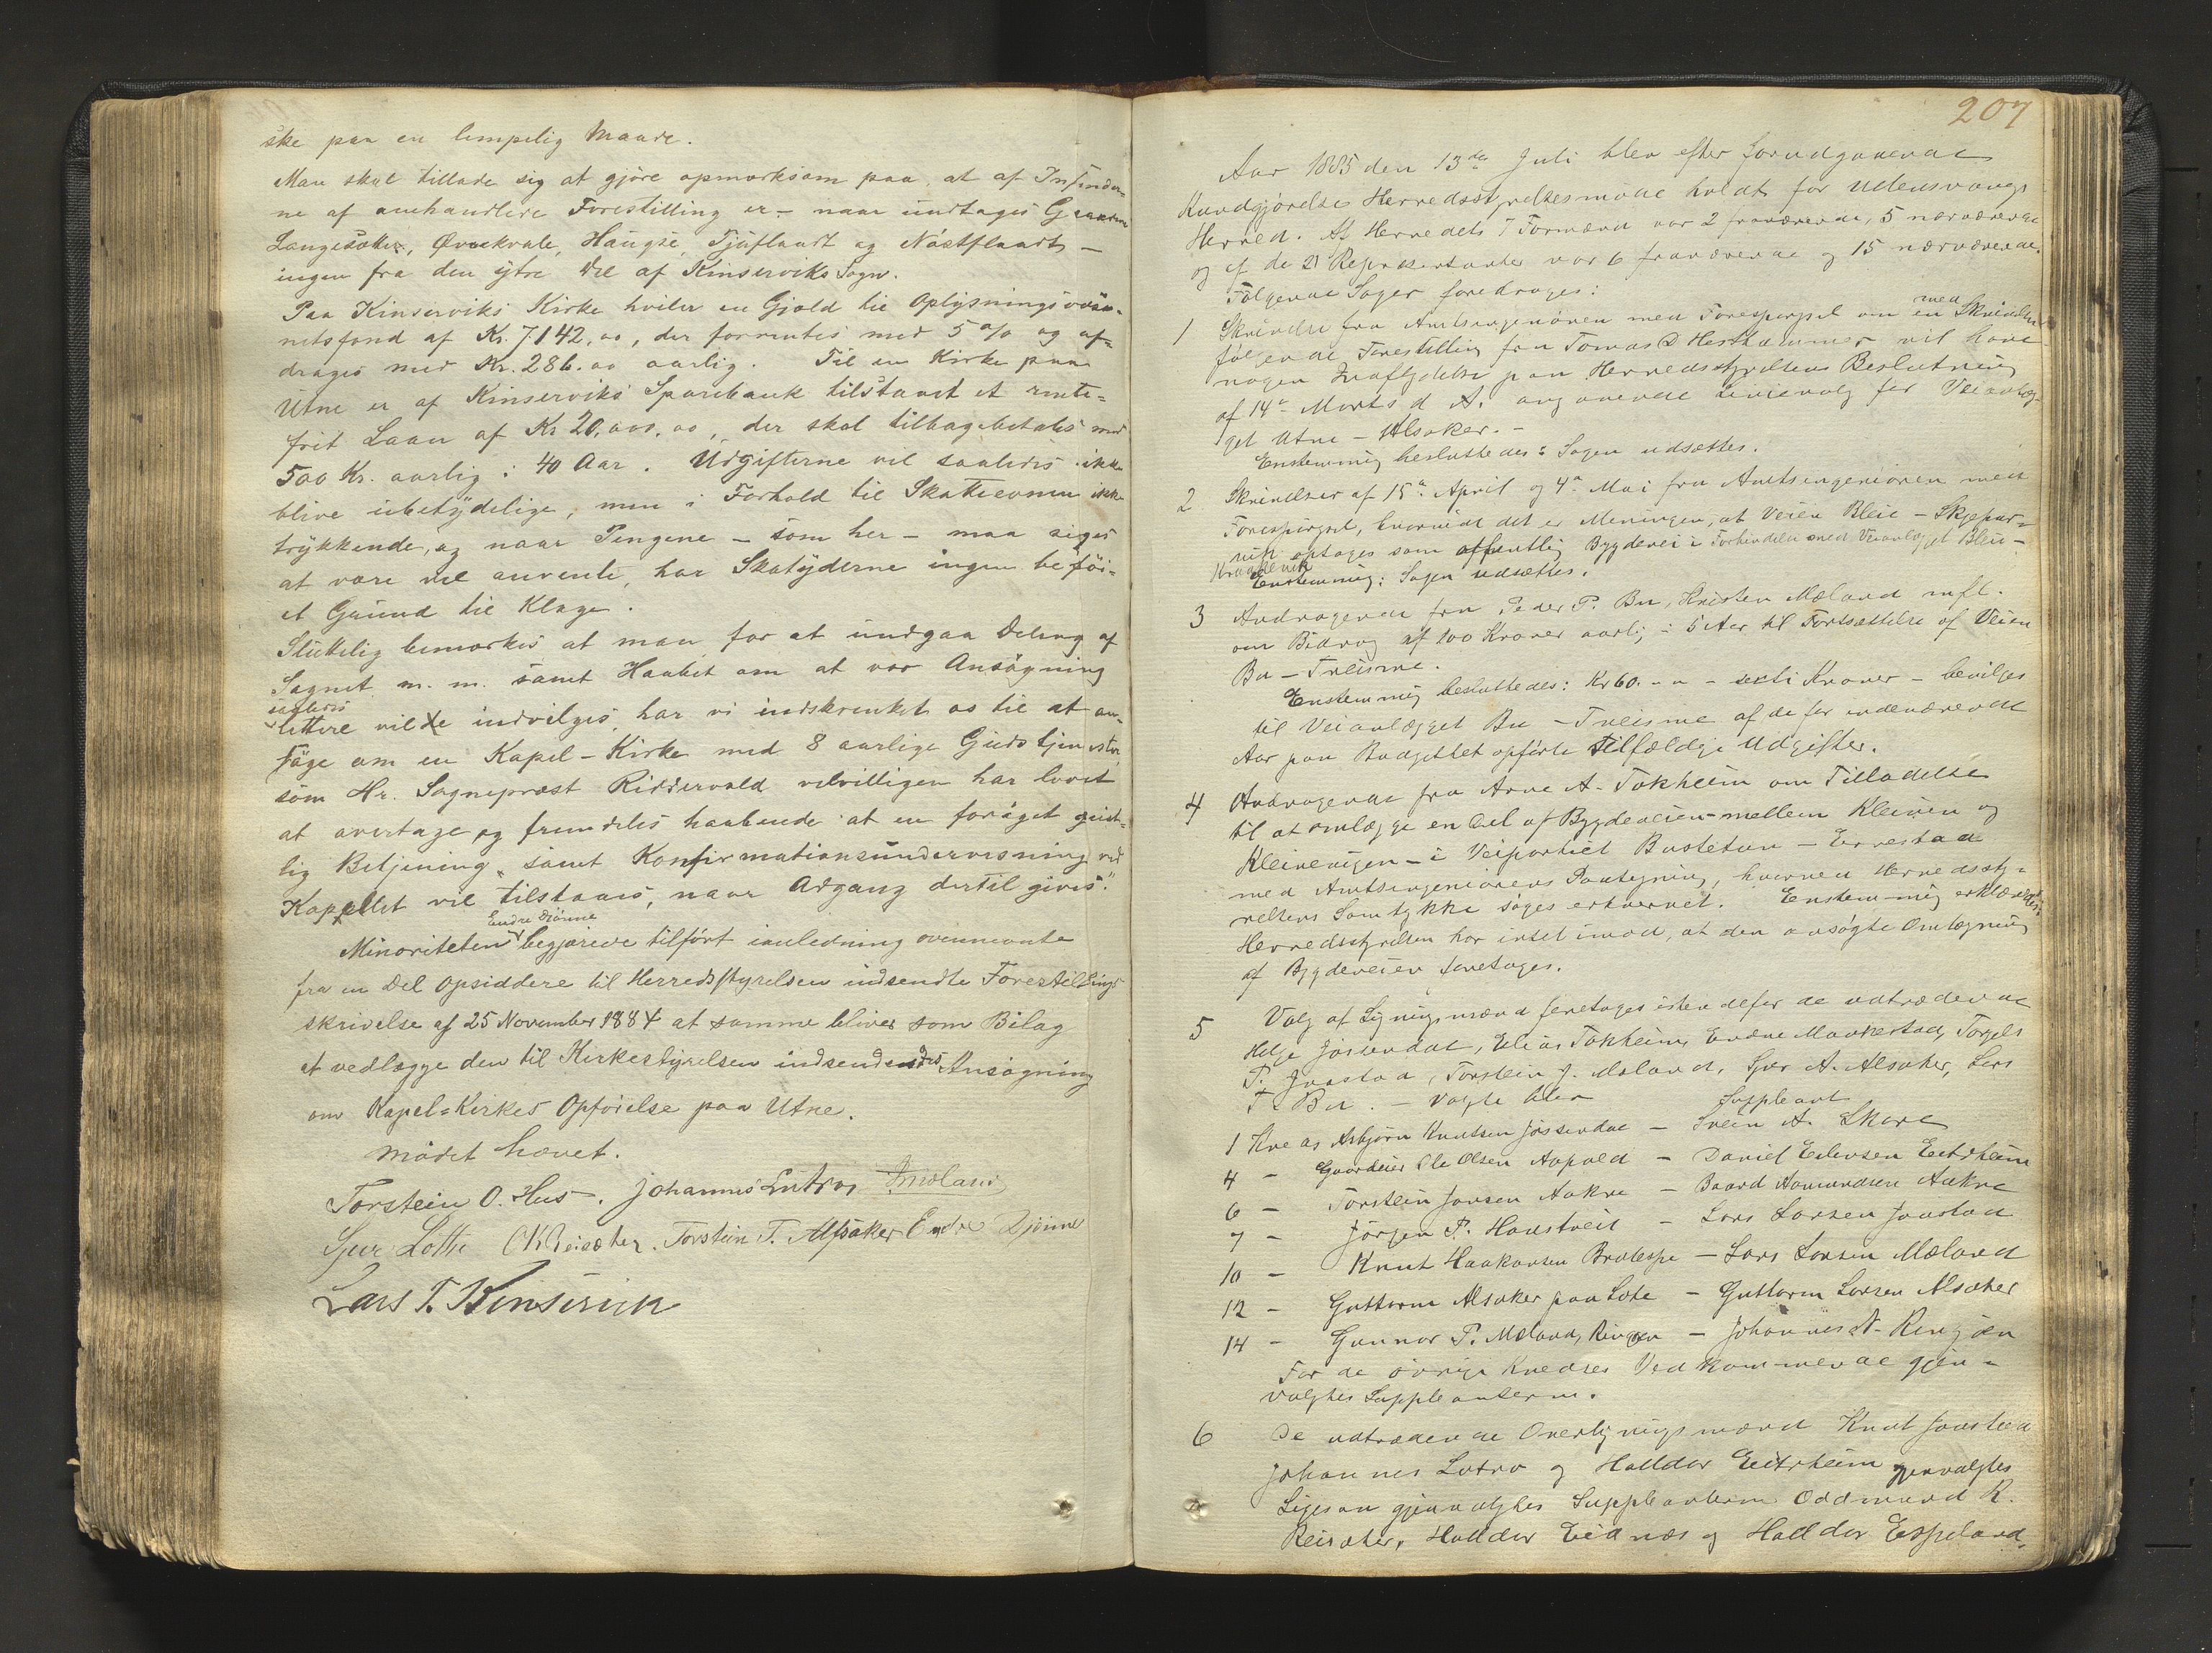 ske paa en lempelig Maade.
Man skal tillade sig at gjöre opmærksom paa, at af Insender-
ne af omhandlede Forestilling er – naar undtages
Langesæter, Øvrekvale, Haugse, Tjoflaadt og Nåstflaadt –
ingen fra den ydre Del af Kinserviks Sogn.
Paa Kinserviks Kirke hviler en Gjæld til Oplysningsvæse-
netsfond af Kr. 7142,00, der forrentes med 5 % og af-
drages med Kr. 286.00 aarlig. Til en Kirke paa
Utne er af Kinserviks Sparebank tilstaaet et rente-
frit Laan af Kr 20,000,00, der skal tilbagebetales med
500 Kr. aarlig i 40 Aar. Udgifterne vil saaledes ikke
blive ubetydelige, men i Forhold til Skatteevnen ikke
trykkende, og naar Pengene – som her – maa siges
at være vel anvendte, har Skatyderne ingen beföi-
et Grund til Klage.
Sluttelig bemærkes at man for at undgaa Deling af
Sognet m. m. samt Haabet om at vor Ansögning
saaledes
lettere vilde indvilges, har vi indskrænket os til at an-
söge om en Kapel-Kirke med 8 aarlige Gudstjenester,
som Hr. Sogneprest Ridderwold velvilligen har lovet
at overtage, og fremdeles haabende at en foröget geist-
lig Betjening, samt Konfirmationsundervisning ved
Kapellet vil tilstaaes, naar Adgang dertil gives."
Endre Djönne
Minoriteten begjærede tilfört i anledning ovennævnte
fra en Del Opsiddere til Herredsstyrelsen indsendte Forestillings
skrivelse af 25 November 1884 at samme bliver som Bilag
at vedlægge den til Kirkestyrelsen indsendendes Ansögning
om Kapel-Kirkes Opförelse paa Utne.
Mödet hævet.
Torstein O. Hus. Johannes Lutro
Sjur Lothe O K Reisæter. Torstein T. Alsaker Endre Djönne
Lars T. Kinservik
207
Aar 1885 den 13de Juli blev efter forudgaaende
Kundgjörelse Herredsstyrelsesmöde holdt for Ullensvangs
Herred. Af Herredets 7 Formænd var 2 fraværende, 5 nærværende
og af de 21 Repræsentanter var 6 fraværende og 15 nærværende.
Fölgende Sager foredroges:
1 Skrivelse fra Amtsingeniören med Forespørgsel om en med Skrivelsen
fölgende Forestilling fra Tomas D Hesthammer vil have
nogen Indflydelse paa Herredsstyrelsens Beslutning
af 14de Marts d A. angaaende Linievalg for Veianlæg-
get Utne – Alsaker. –
Enstemmig besluttedes: Sagen udsættes.
2 Skrivelser af 15de April og 4de Mai fra Amtsingeniören med
Forespörgsel, hvorvidt det er Meningen, at Veien Bleie – Skjepar-
vik optages som offentlig Bygdevei i Forbindelse med Veianlægget Bleie –
Kraakevik
Enstemmig: Sagen udsættes.
3 Andragende fra Peder P. Bu, Kristen Mæland mfl.
om Bidrag af 100 Kroner aarlig i 5 Aar til Fortsættelse af Veien
Bu – Treisme.
Enstemmig besluttedes: Kr 60.00 – seksti Kroner – bevilges
til Veianlægget Bu – Treisme af de for indeværende
Aar paa Budgettet opförte tilfældige Udgifter.
4 Andragende fra Arne A. Tokheim om Tilladelse
til at omlægge en Del af Bygdeveien mellem Kleiven og
Kleivevigen – i Veipartiet Bustetun – Errestad
med Amtsingeniörens Paategning, hvorved Herredssty-
relsens Samtykke söges erhvervet. Enstemmig erklæredes:
Herredsstyrelsen har intet imod, at den ansögte Omlægning
af Bygdeveien foretages.
5 Valg af Ligningsmænd foretages istedetfor de udtrædende
Helge Jössendal, Elias Tokheim, Endre Maakestad, Torgels
P. Jaastad, Torstein J. Mæland, Sjur A. Alsaker, Lars
T. Bu. – Valgte blev Suppleant
1 Kreds Asbjörn Knutsen Jössendal – Svein A. Skare
4 – Gaardeier Ole Olsen Aapold – Daniel Edensen Eitrheim
6 – Torstein Jonsen Aakre – Baard Aamundsen Aakre
7 – Jörgen P. Haustveit – Lars Larsen Jaastad
10 – Knut Haakonsen Bratespe – Lars Larsen Mæland
12 – Guttorm Alsaker paa Lote – Guttorm Larsen Alsaker
14 – Gunnar P. Mæland, Ringöen – Johannes N. Ringöen
For de övrige Kredses Vedkommende gjen-
valgtes Suppleanterne.
6 De udtrædende Overligningsmænd Knut Jaastad
Johannes Lutro og Halldor Eitrheim gjenvalgtes
Ligesaa gjenvalgtes Suppleanterne Oddmund K.
Reisæter, Halldor Eidnæs og Halldor Espeland.